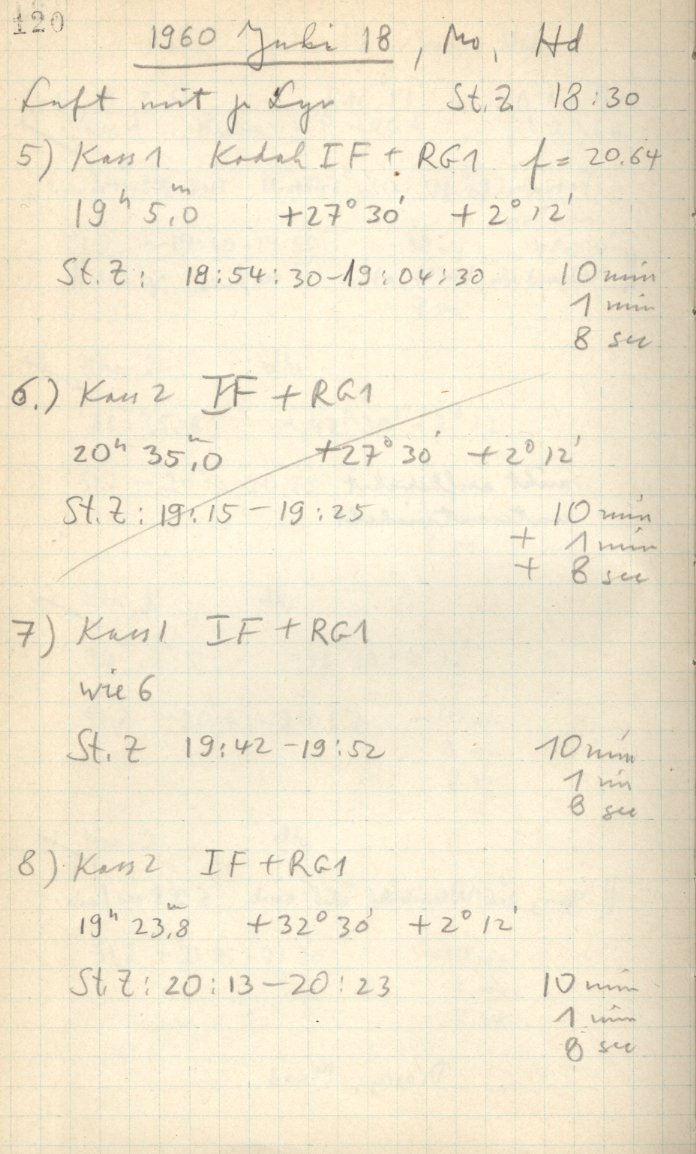 120
1960 Juli 18, Mo, Hd
Luft mit γ Lyr St.Z. 18:30
5) Kass1 Kodak IF + RG1 f = 20.64
19ʰ 5,ᵐ0 +27° 30' +2° 12'
St.Z: 18:54:30-19:04:30 10 min
1 min
8 sec
6.) Kass 2 IF + RG1
20ʰ 35,ᵐ0 +27° 30' +2° 12'
St.Z: 19:15 - 19:25 10 min
+ 1 min
+ 8 sec
7) Kass1 IF + RG1
wie 6
St.Z 19:42 - 19:52 10 min
1 min
8 sec
8) Kass2 IF + RG1
19ʰ 23,ᵐ8 +32° 30' +2° 12'
St.Z: 20:13 - 20:23 10 min
1 min
8 sec